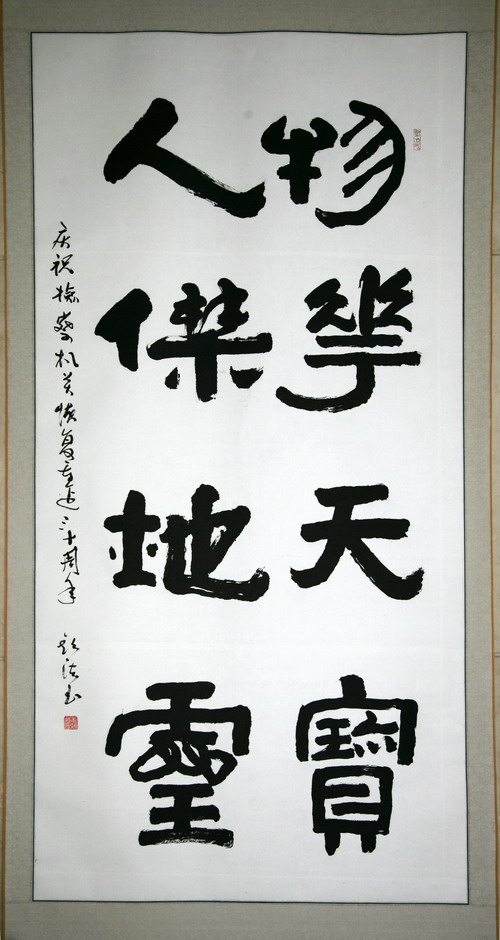 物華天寶
人傑地靈
庆祝检察机关恢复重建三十周年